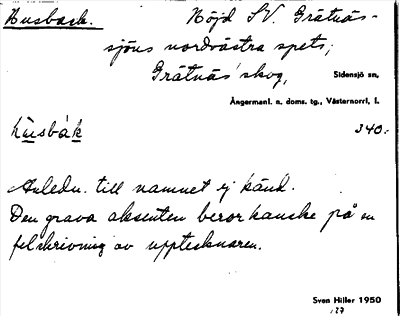 Husback. Höjd SV. Gråtnäs-
sjöns nordvästra spets;
Gråtnäs skog, Sidensjö sn,
Ångermanl. n. doms. tg., Västernorrl. l.
hùsbák 340.
Anledn. till namnet ej känd.
Den grava aksenten beror kanske på en
felskrivning av upptecknaren.
Sven Hiller 1950